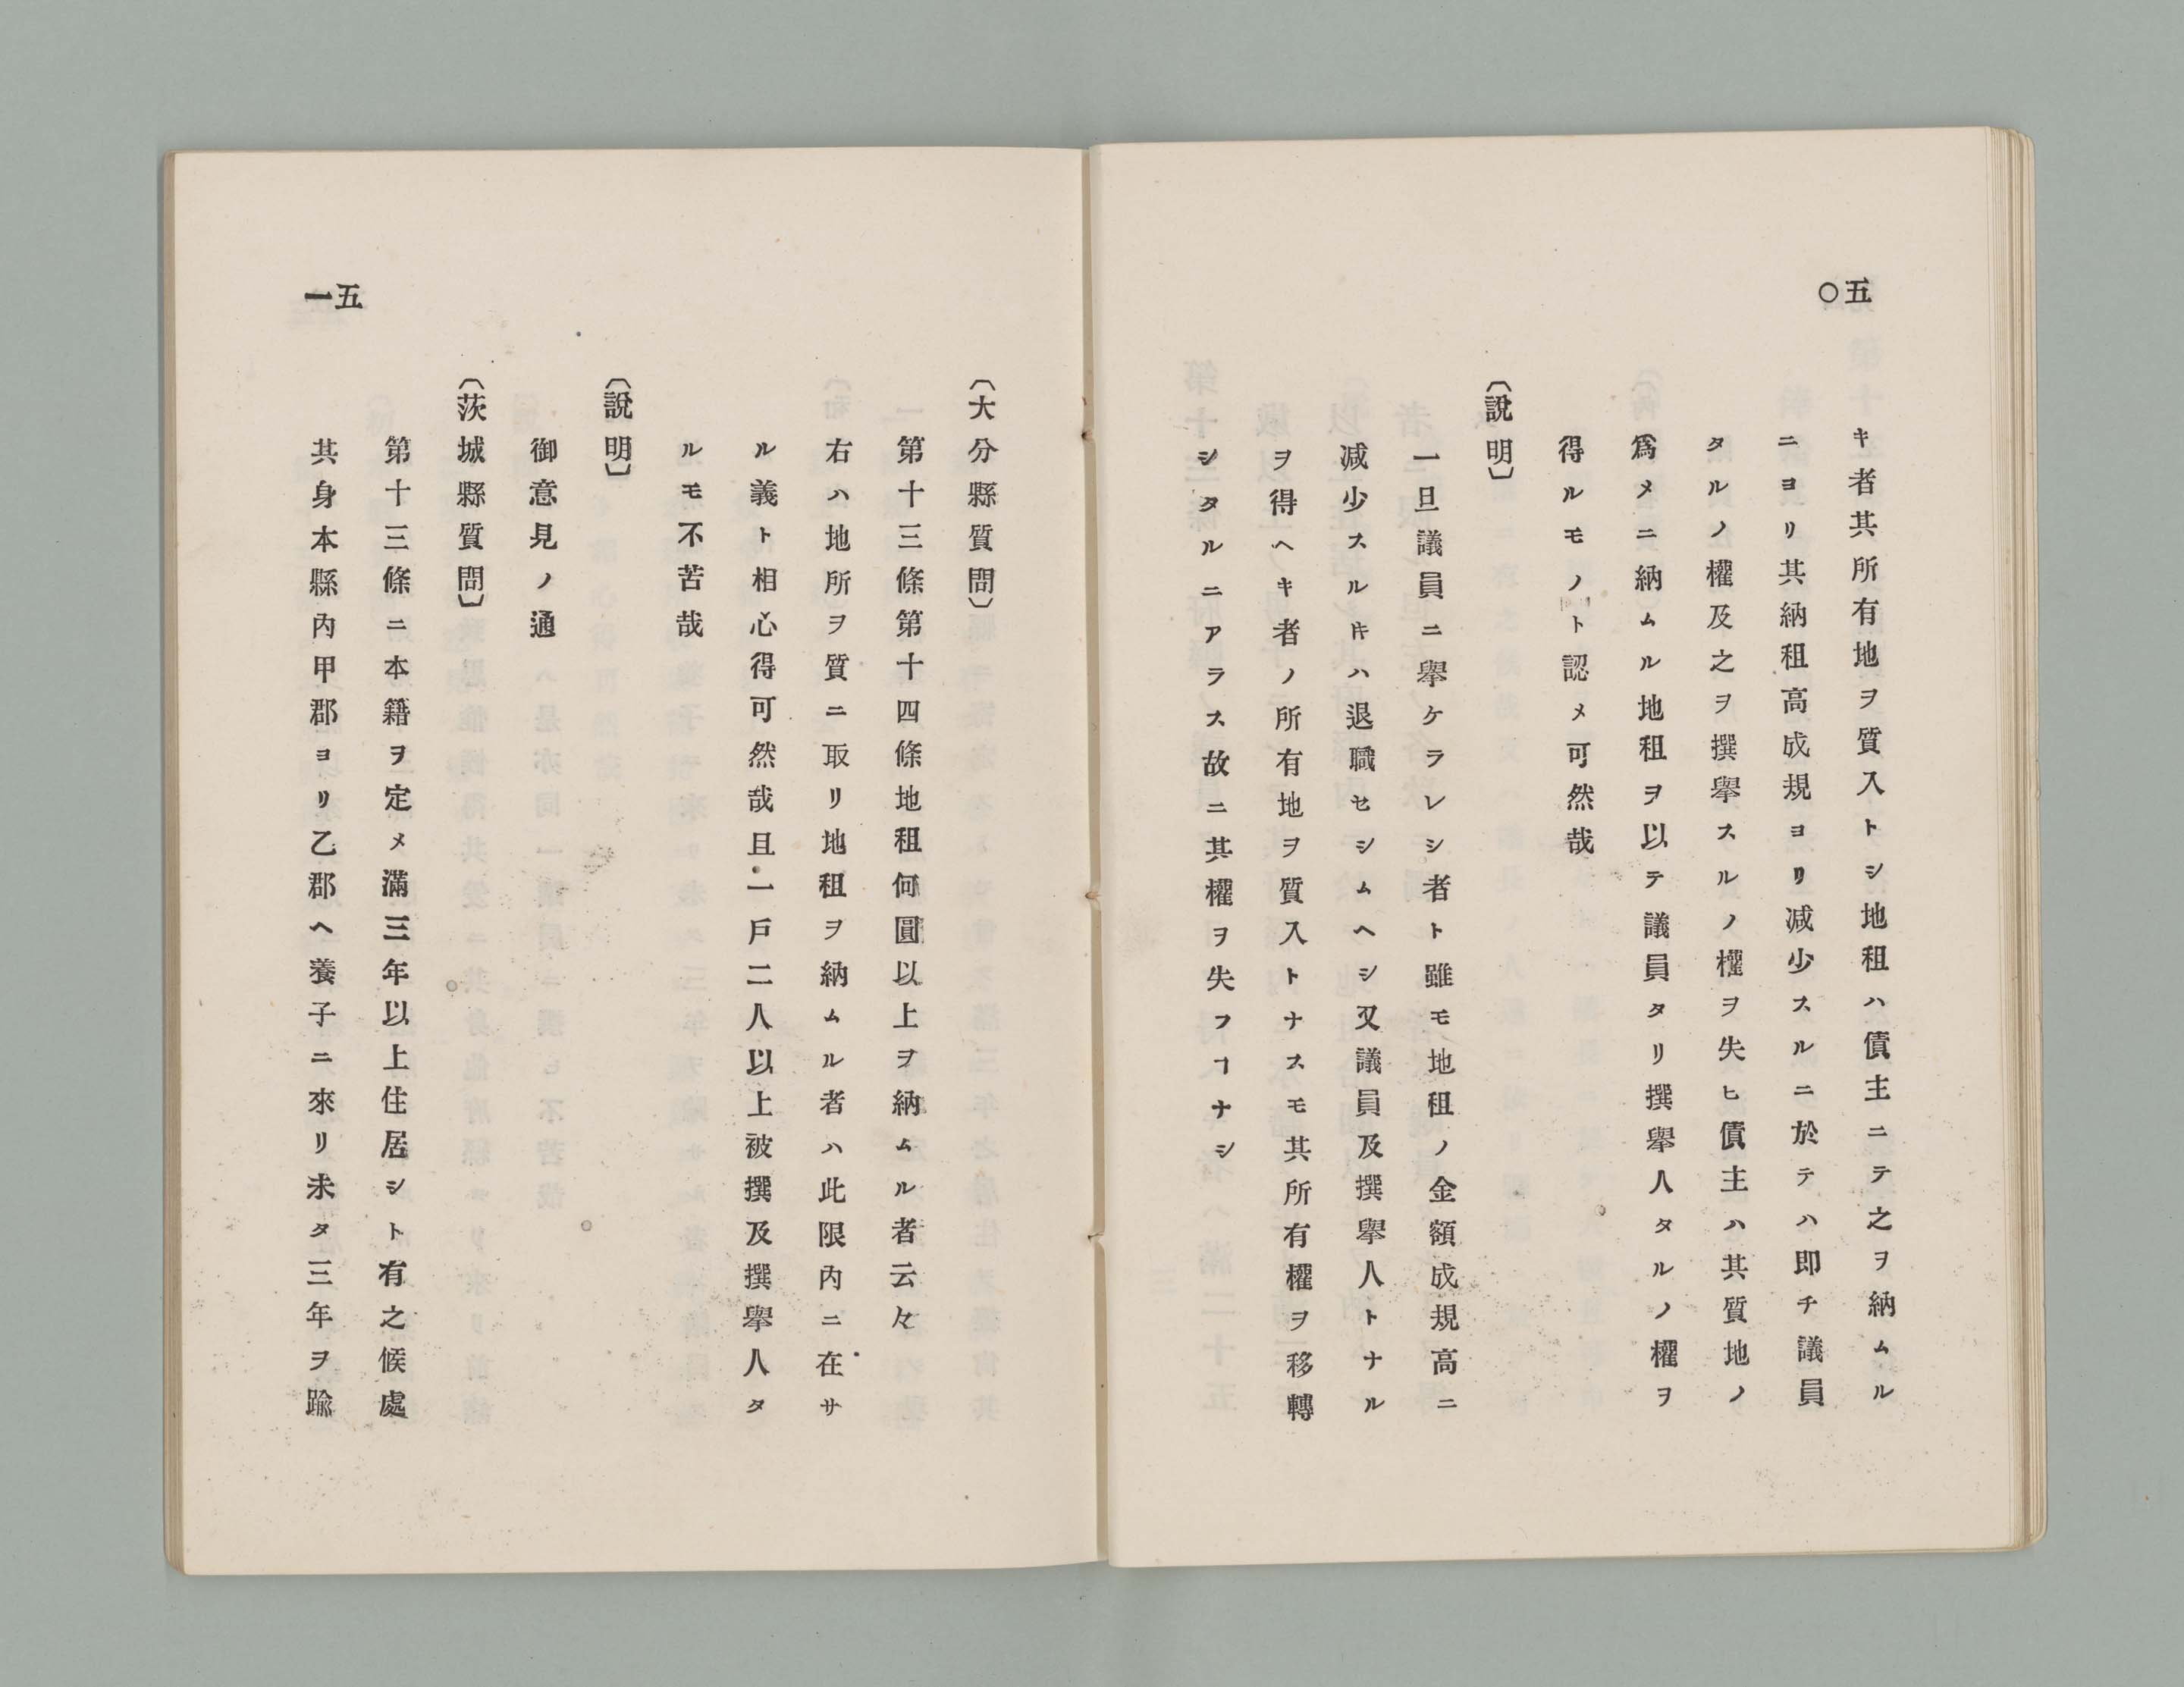 五〇
キ者其所有地ヲ質入トシ地租ハ債主ニテ之ヲ納ムル
ニヨリ其納租高成規ヨリ减少スルニ於テハ即チ議員
タルノ權及之ヲ撰擧スルノ權ヲ失ヒ債主ハ其質地ノ
爲メニ納ムル地租ヲ以テ議員タリ撰擧人タルノ權ヲ
得ルモノト認メ可然哉
〔說明〕
一旦議員ニ擧ケラレシ者ト雖モ地租ノ金額成規高ニ
减少スルキハ退職セシムヘシ又議員及撰擧人トナル
ヲ得ヘキ者ノ所有地ヲ質入トナスモ其所有權ヲ移轉
シタルニアラス故ニ其權ヲ失フヿナシ
五一
〔大分縣質問〕
第十三條第十四條地租何圓以上ヲ納ムル者云々
右ハ地所ヲ質ニ取リ地租ヲ納ムル者ハ此限內ニ在サ
ル義ト相心得可然哉且一戶二人以上被撰及撰擧人タ
ルモ不苦哉
〔說明〕
御意見ノ通
〔茨城縣質問〕
第十三條ニ本籍ヲ定メ滿三年以上住居シト有之候處
其身本縣內甲郡ヨリ乙郡ヘ養子ニ來リ未タ三年ヲ踰